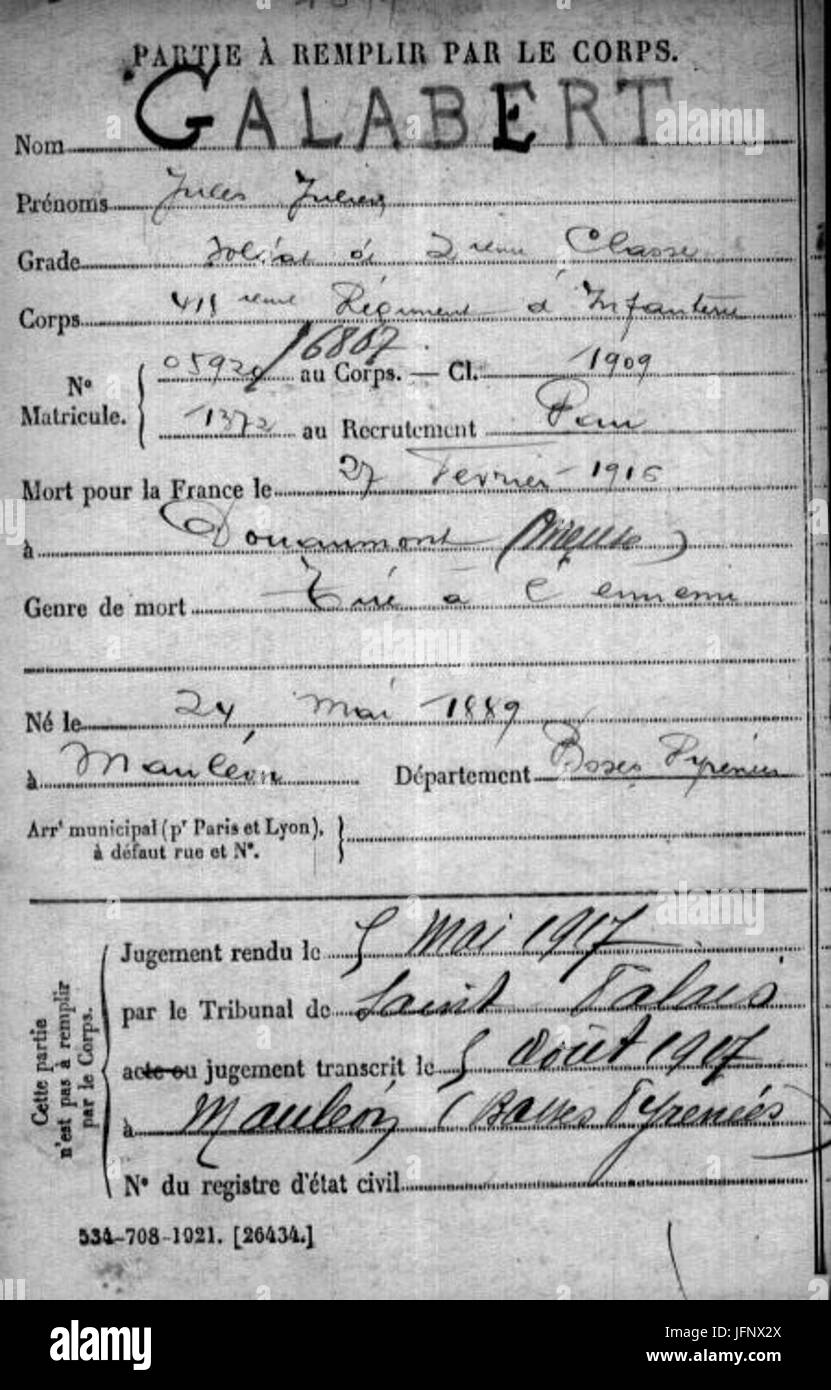 PARTIE À REMPLIR PAR LE CORPS.
Nom GALABERT
Prénoms Jules Julien
Grade Soldat de 2ième Classe
Corps 418ieme Régiment d'Infanterie
16807
N° Matricule. 05920 au Corps. — Cl. 1909
1372 au Recrutement Pau
Mort pour la France le 27 Fevrier 1916
à Douaumont (Meuse)
Genre de mort Tué à l'ennemi
Né le 24 Mai 1889
à Mauléon Département Basses Pyrénées
Arrt municipal (pr Paris et Lyon),
à défaut rue et N°.
Cette partie
n'est pas à remplir
par le Corps.
Jugement rendu le 5 Mai 1917
par le Tribunal de Saint Palais
acte ou jugement transcrit le 5 Août 1917
à Mauléon (Basses Pyrénées)
N° du registre d'état civil
534-708-1921. [26434.]
alamy stock photo
JFNX2X
www.alamy.com